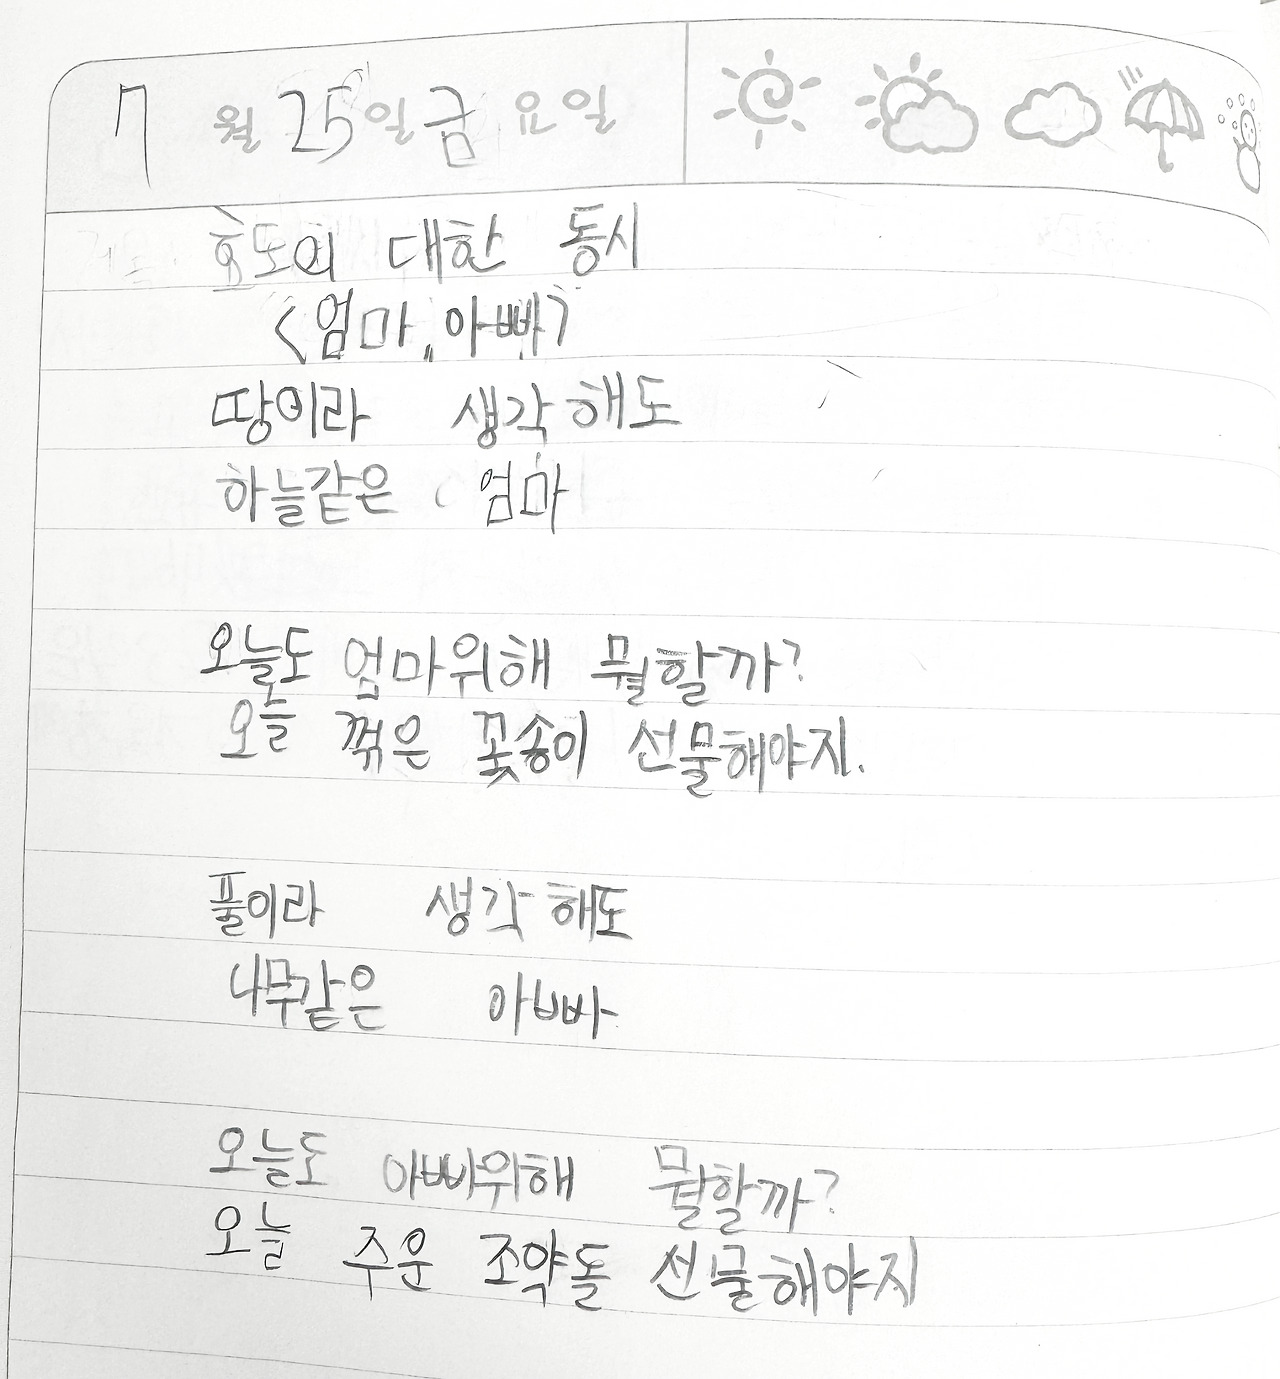 7월 25일 금요일
효도의 대한 동시
<엄마, 아빠>
땅이라 생각해도
하늘같은 엄마
오늘도 엄마위해 뭘할까?
오늘 꺾은 꽃송이 선물해야지.
풀이라 생각해도
나무같은 아빠
오늘도 아빠위해 뭘할까?
오늘 주운 조약돌 선물해야지